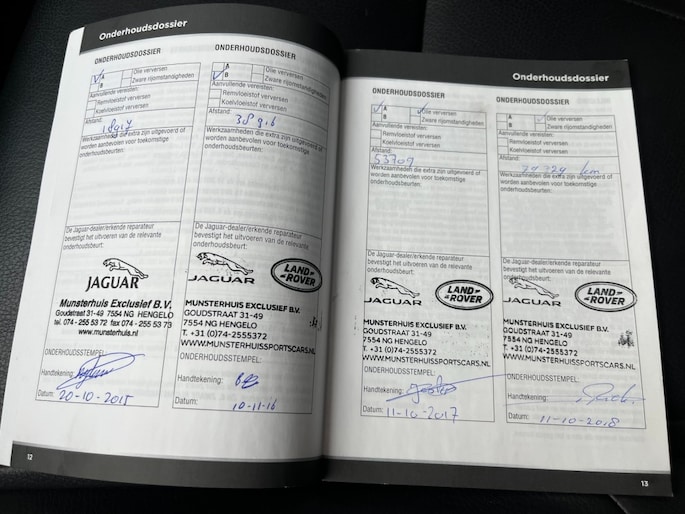 Onderhoudsdossier
ONDERHOUDSDOSSIER
A
B
Olie verversen
Zware rijomstandigheden
Aanvullende vereisten:
Remvloeistof verversen
Koelvloeistof verversen
Afstand:
Werkzaamheden die extra zijn uitgevoerd of
worden aanbevolen voor toekomstige
onderhoudsbeurten:
De Jaguar-dealer/erkende reparateur
bevestigt het uitvoeren van de relevante
onderhoudsbeurt:
JAGUAR
Munsterhuis Exclusief B.V.
Goudsestraat 31-49 7554 NG HENGELO
tel. 074 - 255 53 72 fax 074 - 255 53 73
www.munsterhuis.nl
ONDERHOUDSSTEMPEL:
Handtekening:
Datum: 20-10-2015
12
ONDERHOUDSDOSSIER
A
B
Olie verversen
Zware rijomstandigheden
Aanvullende vereisten:
Remvloeistof verversen
Koelvloeistof verversen
Afstand:
Werkzaamheden die extra zijn uitgevoerd of
worden aanbevolen voor toekomstige
onderhoudsbeurten:
De Jaguar-dealer/erkende reparateur
bevestigt het uitvoeren van de relevante
onderhoudsbeurt:
JAGUAR
LAND ROVER
MUNSTERHUIS EXCLUSIEF B.V.
GOUDSTRAAT 31-49
7554 NG HENGELO
T. +31 (0)74-2555372
WWW.MUNSTERHUISSPORTSCARS.NL
ONDERHOUDSSTEMPEL:
Handtekening:
Datum: 10-11-16
Onderhoudsdossier
ONDERHOUDSDOSSIER
A
B
Olie verversen
Zware rijomstandigheden
Aanvullende vereisten:
Remvloeistof verversen
Koelvloeistof verversen
Afstand:
53709
Werkzaamheden die extra zijn uitgevoerd of
worden aanbevolen voor toekomstige
onderhoudsbeurten:
De Jaguar-dealer/erkende reparateur
bevestigt het uitvoeren van de relevante
onderhoudsbeurt:
JAGUAR
LAND ROVER
MUNSTERHUIS EXCLUSIEF B.V.
GOUDSTRAAT 31-49
7554 NG HENGELO
T. +31 (0)74-2555372
WWW.MUNSTERHUISSPORTSCARS.NL
ONDERHOUDSSTEMPEL:
Handtekening:
Datum: 11-10-2017
ONDERHOUDSDOSSIER
A
B
Olie verversen
Zware rijomstandigheden
Aanvullende vereisten:
Remvloeistof verversen
Koelvloeistof verversen
Afstand:
km
Werkzaamheden die extra zijn uitgevoerd of
worden aanbevolen voor toekomstige
onderhoudsbeurten:
De Jaguar-dealer/erkende reparateur
bevestigt het uitvoeren van de relevante
onderhoudsbeurt:
JAGUAR
LAND ROVER
MUNSTERHUIS EXCLUSIEF B.V.
GOUDSTRAAT 31-49
7554 NG HENGELO
T. +31 (0)74-2555372
WWW.MUNSTERHUISSPORTSCARS.NL
ONDERHOUDSSTEMPEL:
Handtekening:
Datum: 11-10-2018
13